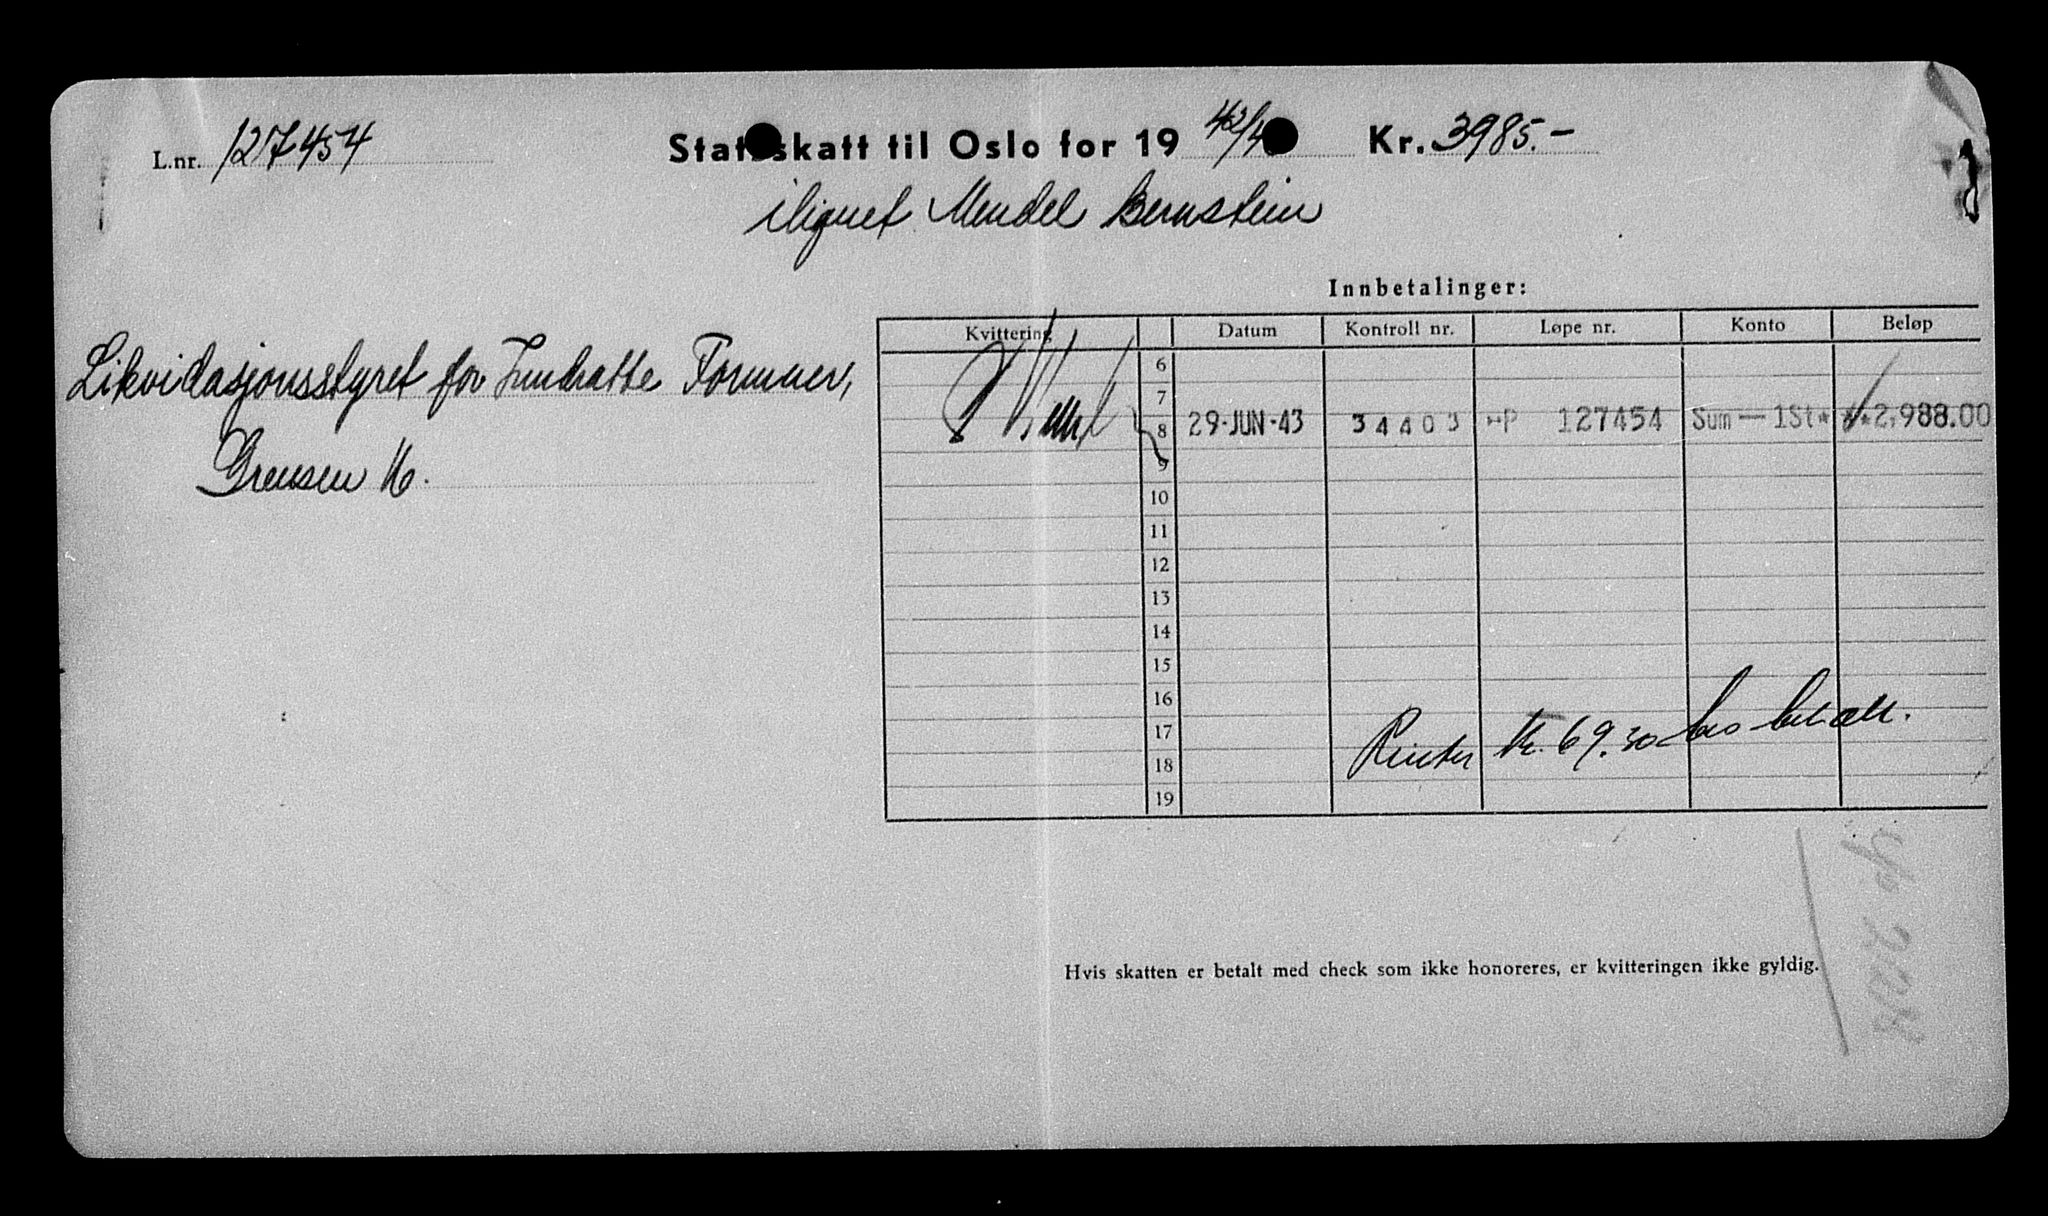 L.nr. 127454 Statsskatt til Oslo for 19 42/4 Kr. 3985.-
ilignet Mendel Bernstein
Innbetalinger:
Kvittering Datum Kontroll nr. Løpe nr. Konto Beløp
Likvidasjonsstyret for Inndratte Formuer,
Grensen 16.
6
7
8 29-JUN-43 34403 P 127454 Sum — 1St* **2,988.00
9
10
11
12
13
14
15
16
17 Renter kr. 69.30 bes betalt.
18
19
Hvis skatten er betalt med check som ikke honoreres, er kvitteringen ikke gyldig.